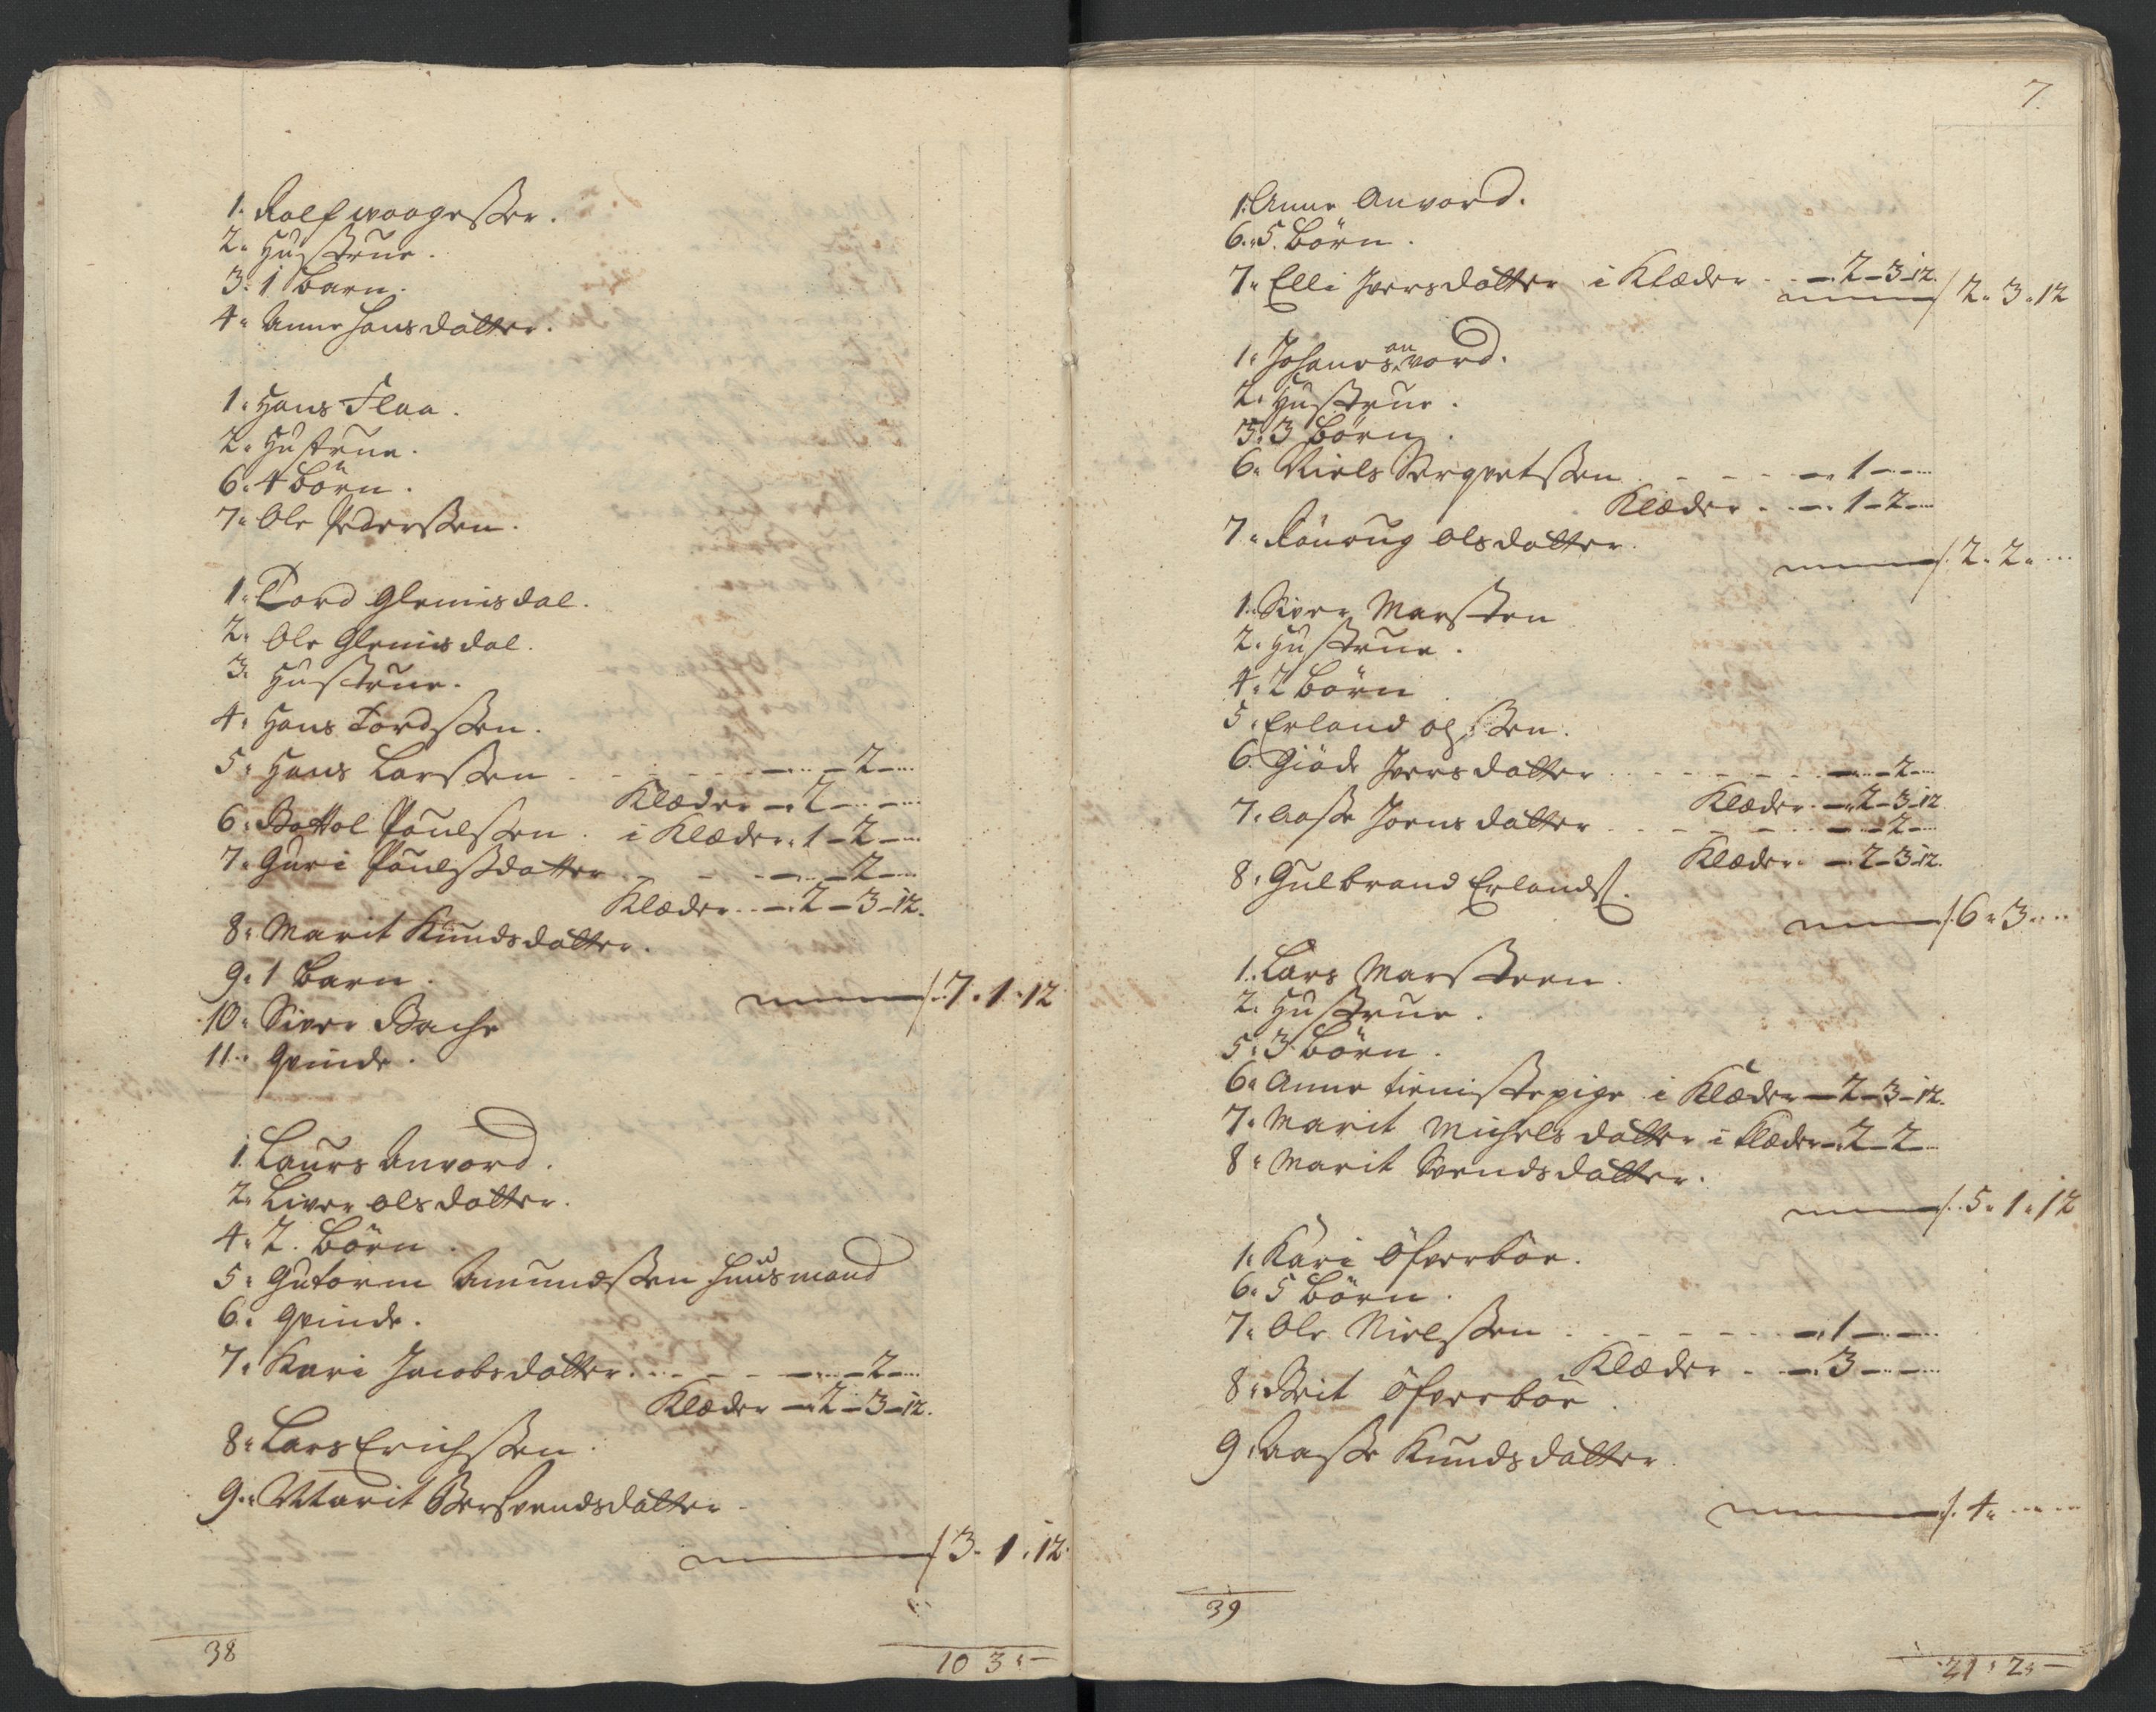 1. Rolf waagesetter.
2. Hustrue.
3. 1 barn.
4. Anne Hansdatter.
1. Hans Flaa.
2. Hustrue.
6. 4 börn.
7. Ole Pedersen.
1. Tord Glemisdal.
2. Ole Glemisdal.
3. Hustrue.
4. Hans Tordssen.
5. Hans Larssen - 2 -
Klæder - 2 -
6. Bottol Poulssen. i Klæder. 1 - 2 -
7. Guri Poulsdatter - 2 -
Klæder - 2 - 3 - 12.
8. Marit Knudsdatter.
9. 1 barn.
7. 1. 12
10. Siver Bache
11. Qvinde.
1. Laurs Anvord.
2. Liver olsdatter.
4. 2. börn.
5. Gutorm Amundssen Huusmand
6. Qvinde.
7. Kari Jacobsdatter. - 2 -
Klæder - 2 - 3 - 12.
8. Lars Erichssen.
9. Marit Bersvendsdatter
3. 1. 12.
38
10 3 -
7.
1. Anne Anvord.
6. 5. börn.
7. Elli Iversdatter i Klæder - 2 - 3 - 12.
2. 3. 12
1. Johanes anvord.
2. Hustrue.
5. 3 börn.
6. Niels - 1 -
Klæder - 1 - 2 -
7. Rönoug olsdatter.
2. 2. -
1. Siver Marsteen
2. Hustrue.
4. 2 börn
5. Erland olssen.
6. Giöde Iversdatter - 2 -
Klæder - 2 - 3 - 12
7. Aasse Joensdatter - 2 -
Klæder - 2 - 3 - 12.
8. Gulbrand Erlands.
6. 3. -
1. Lars Marsteen.
2. Hustrue.
5. 3 börn.
6. Anne tienistepige i Klæder - 2 - 3 - 12.
7. Marit Michelsdatter i Klæder - 2 - 2 -
8. Marit Svendsdatter.
5. 1. 12
1. Kari Öfverböe.
6. 5 börn.
7. Ole Nielssen - 1 -
Klæder - 3 -
8. Brit Öfverböe.
9. Aasse Knudsdatter
4. -
39
21. 2. -